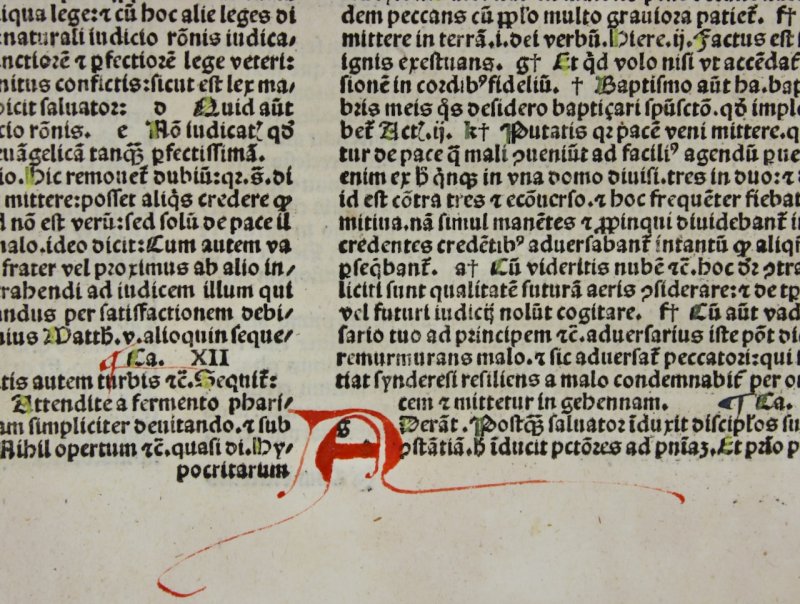 iqua lege:⁊ cū hoc alie leges di
naturali iudicio rōnis iudica/
nctiorē ⁊ ꝑfectiorē lege veteri:
nitus confictis:sicut est lex ma/
dicit saluator: d Quid aūt
cio rōnis. e Nō iudicat qḋ
euāgelicā tanꝙ̄ ꝑfectissimā.
io. Hic remouet dubiū:qꝛ.s̄.di
mittere:posset aliq̄s credere ꝙ
d nō est verū:sed solū de pace il
malo.ideo dicit:Cum autem va
frater vel proximus ab alio in/
rahendi ad iudicem illum qui
andus per satisfactionem debi/
nius Matth.v.alioquin seque/
¶ Ca. XII
tis autem turbis ⁊c̄.Sequit̄:
Attendite a fermento phari/
am simpliciter deuitando.⁊ sub
Nihil opertum ⁊c̄.quasi di.Hy/
pocritarum
dem peccans cū ꝓp̄lo multo grauiora patiet̄. f†
mittere in terrā.i.dei verbū.Hiere.ij.Factus est
ignis exestuans. g† Et qḋ volo nisi vt accēdat̄
sionē in cordibꝰ fideliū. † Baptismo aūt ha.bap
bris meis q̄s desidero baptiçari sp̄uscto.qḋ imple
bet̄ Act.ij. k† Putatis qꝛ pacē veni mittere.q
tur de pace ꝙ̄ mali ꝯueniūt ad faciliꝰ agendū
enim ex ħ q̄nꝙ̄ in vna domo diuisi.tres in duo:⁊ d
id est cōtra tres ⁊ ecōuerso.⁊ hoc frequēter fiebat
mitiua.nā simul manētes ⁊ ꝓpinqui diuidebant̄ in
credentes credētibꝰ aduersabant̄ intantū ꝙ aliq
ꝑseq̄bant̄. a† Cū videritis nubē ⁊c̄.hoc dꝛ̄ ꝯtra
liciti sunt qualitatē futurā aeris ꝯsiderare:⁊ de tꝑ
vel futuri iudicij nolūt cogitare. f† Cū aūt vad
sario tuo ad principem ⁊c̄.aduersarius iste pōt di
remurmurans malo.⁊ sic aduersat̄ peccatori:qui
tiat synderesi resiliens a malo condemnabit̄ per o
cem ⁊ mittetur in gehennam. ¶ Ca.
A g Derāt .Postꝙ̄ saluator īduxit discipl̄os su
pstātiā.ħ īducit pctōres ad pn̄iaꝫ.Et pr̄io p